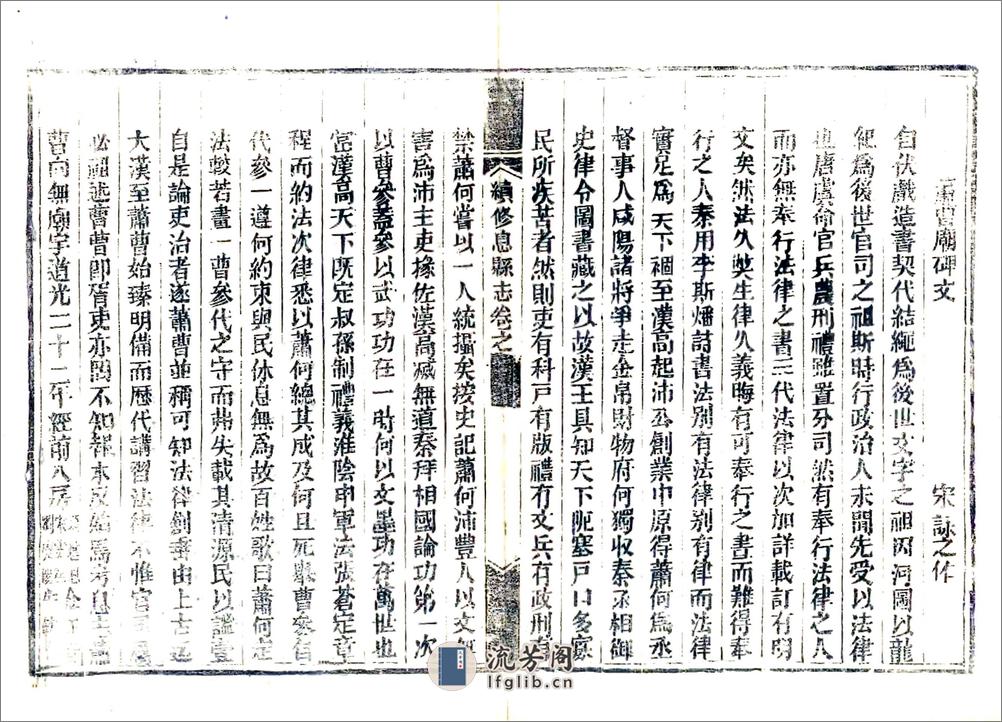 蕭曹廟碑文 宋詠之作
自伏戲造書契代結繩為後世文字之祖因河圖以龍
紀為後世官司之祖斯時行政治人未聞先受以法律
也唐虞命官兵農刑禮雖置分司然有奉行法律之人
而亦無奉行法律之書三代法律以次加詳載訂有明
文矣然法久弊生律久義晦有可奉行之書而難得奉
行之人秦用李斯燔詩書法別有法律别有律而法律
實足為天下禍至漢高起沛公創業中原得蕭何為丞
督事人咸陽諸將爭走金帛財物府何獨收秦丞相御
史律令圖書藏之以故漢王具知天下阨塞戸口多寡
民所疾苦者然則吏有科戸有版禮有文兵有政刑有
續修息縣志卷之
禁蕭何嘗以一人統攝矣按史記蕭何沛豐人以文無
害為沛主吏掾佐漢高滅無道秦拜相國論功第一次
以曹參蓋參以武功功在一時何以文墨功在萬世也
當漢高天下既定叔孫制禮義淮陰申軍法張蒼定章
程而約法次律悉以蕭何總其成及何且死舉曹參自
代參一遵何約束與民休息無為故百姓歌曰蕭何定
法較若畫一曹參代之守而弗失載其清源民以謐壹
自是論吏治者遂蕭曹並稱可知法律創垂由上古迄
大漢至蕭曹始臻明備而歷代講習法律不惟官司
必祖述蕭曹即胥吏亦罔不知報本反始為考息邑蕭
曹向無廟宇道光二十二年經前八房
流芳阁
lfglib.cn